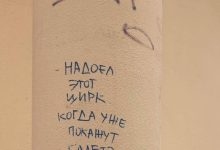 НАДОЕЛ
ЭТОТ
ЦИРК
КОГДА УЖЕ
ПОКАЖУТ